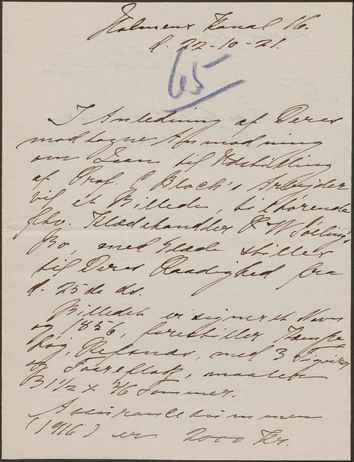 Holmens Kanal 16.
d. 22-10-21.
65
I Anledning af Deres
modtagne Anmodning
om Laan til Udstilling
af Prof. C Bloch's Arbejder
vil et Billede tilhørende
Klædehandler F W
Bo, med Glæde stilles
til Deres Raadighed fra
d. 25de ds.
Billedet er signeret
og 1856, forestiller
med 3 Figurer
og maaler
31½ x 26 Tommer.
Assurancesummen
(1916) er 2000 Kr.